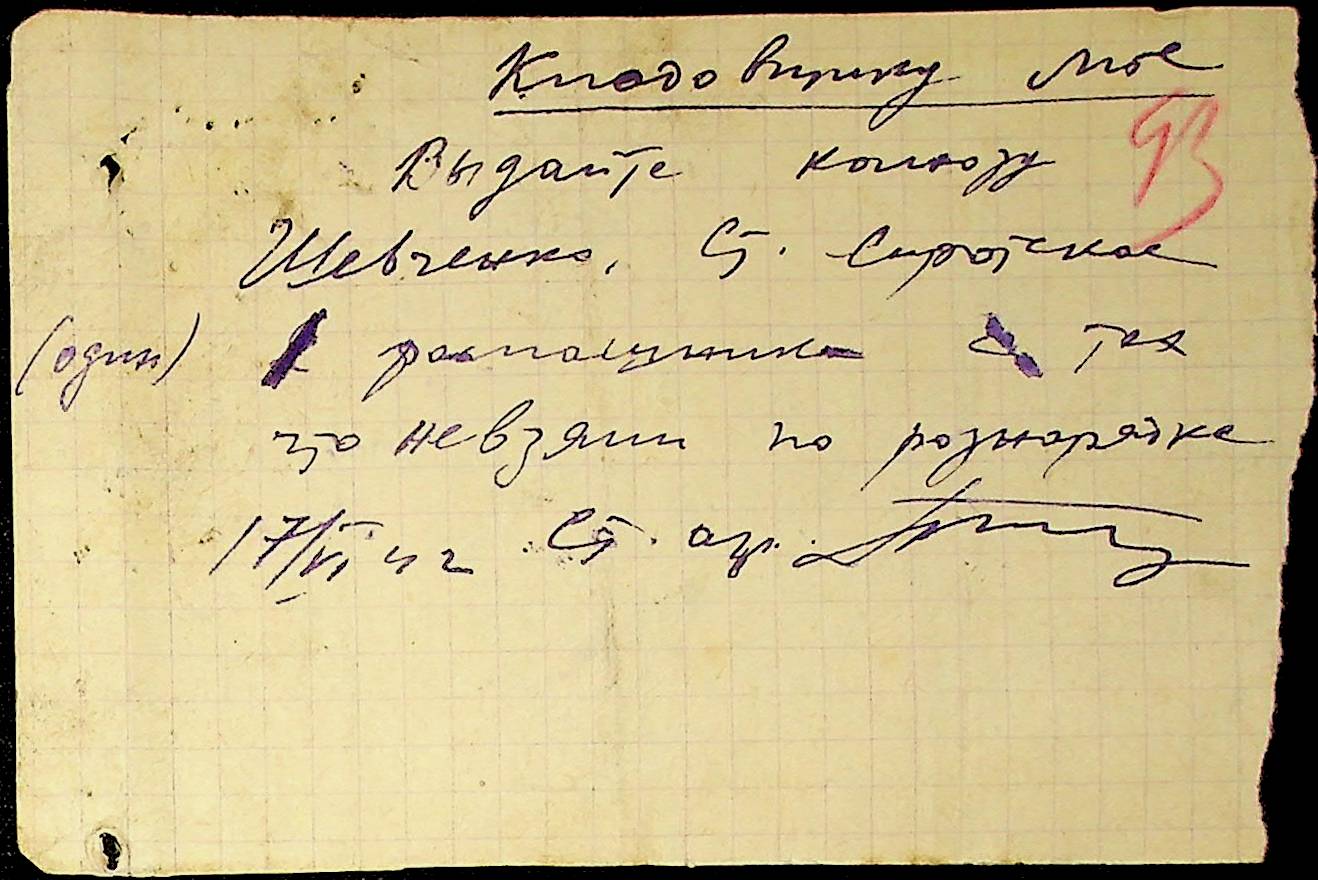 Кладовщику МТС
93
Выдайте колхозу
Шевченко, С. Сиротское
(один) 1 распашника с тех
что не взяли по рознарядке
17/VI 42 Ст. агр.